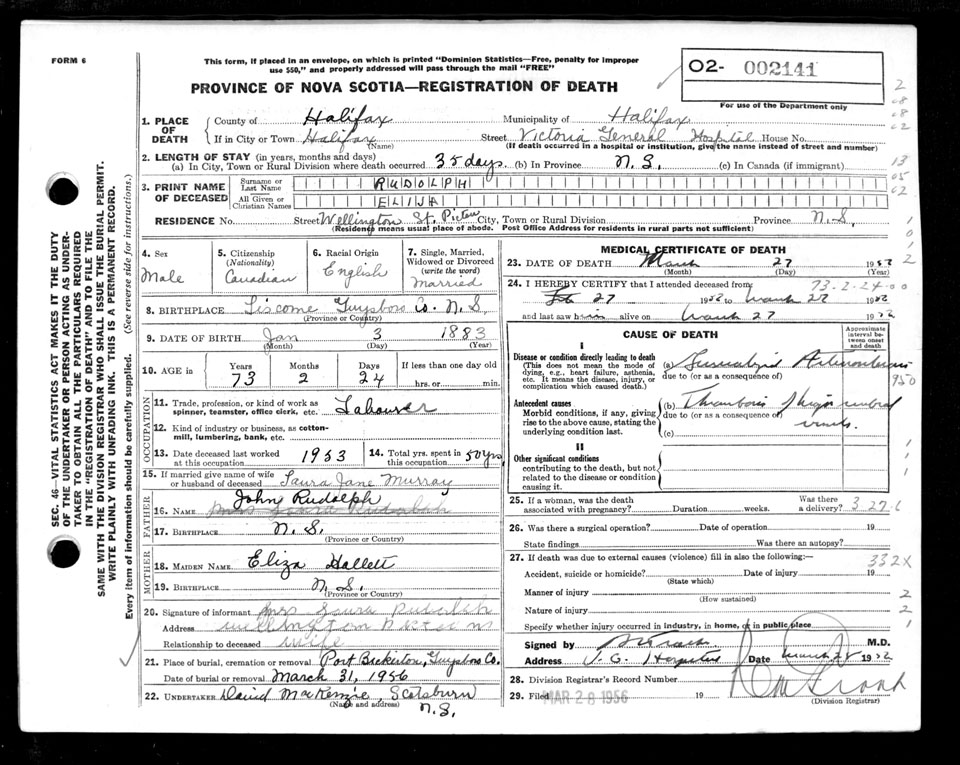 FORM 6
This form, if placed in an envelope, on which is printed "Dominion Statistics—Free, penalty for improper
use $50," and properly addressed will pass through the mail "FREE"
O2- 002141
For use of the Department only
PROVINCE OF NOVA SCOTIA—REGISTRATION OF DEATH
1. PLACE OF DEATH
County of Halifax Municipality of Halifax
If in City or Town Halifax (Name) Street Victoria General Hospital House No.
(If death occurred in a hospital or institution, give the name instead of street and number)
2. LENGTH OF STAY (in years, months and days)
(a) In City, Town or Rural Division where death occurred 35 days. (b) In Province N.S. (c) In Canada (if immigrant)
3. PRINT NAME OF DECEASED
Surname or Last Name RUDOLPH
All Given or Christian Names ELIJA
RESIDENCE No. Street Wellington St. Pictou City, Town or Rural Division Province N.S.
(Residence means usual place of abode. Post Office Address for residents in rural parts not sufficient)
4. Sex Male
5. Citizenship (Nationality) Canadian
6. Racial Origin English
7. Single, Married, Widowed or Divorced (write the word) Married
8. BIRTHPLACE Liscome Guysboro Co. N.S
(Province or Country)
9. DATE OF BIRTH Jan 3 1883
(Month) (Day) (Year)
10. AGE in Years 73 Months 2 Days 24 If less than one day old hrs. or min.
OCCUPATION
11. Trade, profession, or kind of work as spinner, teamster, office clerk, etc. Labourer
12. Kind of industry or business, as cotton-mill, lumbering, bank, etc.
13. Date deceased last worked at this occupation 1953
14. Total yrs. spent in this occupation 50 yrs
15. If married give name of wife or husband of deceased Laura Jane Murray
FATHER
John Rudolph
16. NAME Mrs Laura Rudolph
17. BIRTHPLACE N.S.
(Province or Country)
MOTHER
18. MAIDEN NAME Eliza Hallett
19. BIRTHPLACE N.S.
(Province or Country)
20. Signature of informant Mrs Laura Rudolph
Address Wellington Pictou N S
Relationship to deceased wife
21. Place of burial, cremation or removal Port Bickerton, Guysboro Co.
Date of burial or removal March 31, 1956
22. UNDERTAKER David MacKenzie, Scotsburn
(Name and address) N.S.
MEDICAL CERTIFICATE OF DEATH
23. DATE OF DEATH March 27 19
(Month) (Day) (Year)
24. I HEREBY CERTIFY that I attended deceased from 73-2-24-00
Feb 27 19 to March 27 19
and last saw him alive on March 27 19
CAUSE OF DEATH
Approximate interval between onset and death
I
Disease or condition directly leading to death
(This does not mean the mode of dying, e.g., heart failure, asthenia, etc. It means the disease, injury, or complication which caused death.)
(a) Generalized Arteriosclerosis
due to (or as a consequence of)
Antecedent causes
Morbid conditions, if any, giving rise to the above cause, stating the underlying condition last.
(b) Thrombosis cerebral
due to (or as a consequence of) vessels.
(c)
II
Other significant conditions
contributing to the death, but not related to the disease or condition causing it.
25. If a woman, was the death associated with pregnancy? Duration weeks. Was there a delivery?
26. Was there a surgical operation? Date of operation 19
State findings Was there an autopsy?
27. If death was due to external causes (violence) fill in also the following: 332X
Accident, suicide or homicide? Date of injury 19
(State which)
Manner of injury
(How sustained)
Nature of injury
Specify whether injury occurred in industry, in home, or in public place
Signed by M.D.
Address V. G. Hospital Date March 28 19
28. Division Registrar's Record Number
29. Filed MAR 28 1956 19
(Division Registrar)
SEC. 46—VITAL STATISTICS ACT MAKES IT THE DUTY
OF THE UNDERTAKER OR PERSON ACTING AS UNDER-
TAKER TO OBTAIN ALL THE PARTICULARS REQUIRED
IN THE "REGISTRATION OF DEATH" AND TO FILE THE
SAME WITH THE DIVISION REGISTRAR WHO SHALL ISSUE THE BURIAL PERMIT.
WRITE PLAINLY WITH UNFADING INK. THIS IS A PERMANENT RECORD.
Every item of information should be carefully supplied. (See reverse side for instructions.)